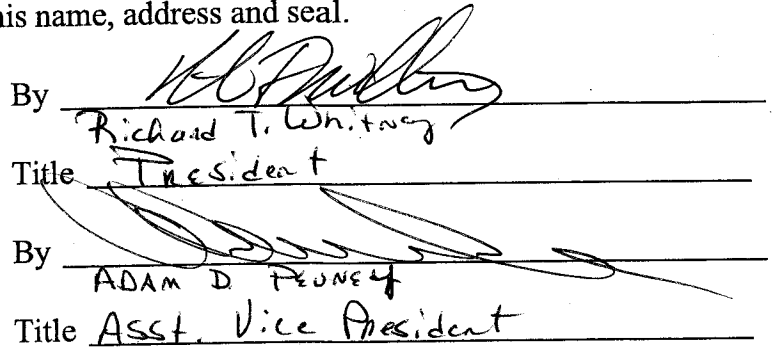 his name, address and seal.
By
Richard T. Whitney
Title President
By
ADAM D.
Title Asst. Vice President